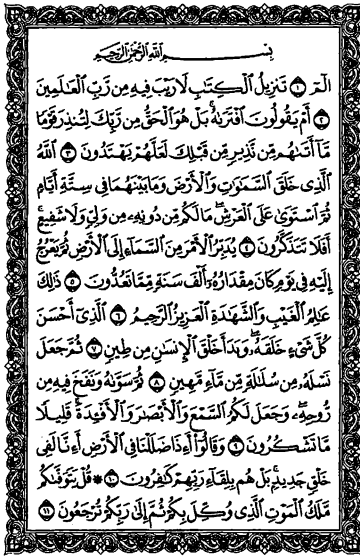 بِسْمِ اللَّهِ الرَّحْمَٰنِ الرَّحِيمِ
الٓمٓ ١ تَنزِيلُ ٱلْكِتَٰبِ لَا رَيْبَ فِيهِ مِن رَّبِّ ٱلْعَٰلَمِينَ
٢ أَمْ يَقُولُونَ ٱفْتَرَىٰهُ ۚ بَلْ هُوَ ٱلْحَقُّ مِن رَّبِّكَ لِتُنذِرَ قَوْمًا
مَّآ أَتَىٰهُم مِّن نَّذِيرٍ مِّن قَبْلِكَ لَعَلَّهُمْ يَهْتَدُونَ ٣ ٱللَّهُ
ٱلَّذِى خَلَقَ ٱلسَّمَٰوَٰتِ وَٱلْأَرْضَ وَمَا بَيْنَهُمَا فِى سِتَّةِ أَيَّامٍ
ثُمَّ ٱسْتَوَىٰ عَلَى ٱلْعَرْشِ ۖ مَا لَكُم مِّن دُونِهِۦ مِن وَلِىٍّ وَلَا شَفِيعٍ ۚ
أَفَلَا تَتَذَكَّرُونَ ٤ يُدَبِّرُ ٱلْأَمْرَ مِنَ ٱلسَّمَآءِ إِلَى ٱلْأَرْضِ ثُمَّ يَعْرُجُ
إِلَيْهِ فِى يَوْمٍ كَانَ مِقْدَارُهُۥٓ أَلْفَ سَنَةٍ مِّمَّا تَعُدُّونَ ٥ ذَٰلِكَ
عَٰلِمُ ٱلْغَيْبِ وَٱلشَّهَٰدَةِ ٱلْعَزِيزُ ٱلرَّحِيمُ ٦ ٱلَّذِىٓ أَحْسَنَ
كُلَّ شَىْءٍ خَلَقَهُۥ ۖ وَبَدَأَ خَلْقَ ٱلْإِنسَٰنِ مِن طِينٍ ٧ ثُمَّ جَعَلَ
نَسْلَهُۥ مِن سُلَٰلَةٍ مِّن مَّآءٍ مَّهِينٍ ٨ ثُمَّ سَوَّىٰهُ وَنَفَخَ فِيهِ مِن
رُّوحِهِۦ ۖ وَجَعَلَ لَكُمُ ٱلسَّمْعَ وَٱلْأَبْصَٰرَ وَٱلْأَفْـِٔدَةَ ۚ قَلِيلًا
مَّا تَشْكُرُونَ ٩ وَقَالُوٓا۟ أَءِذَا ضَلَلْنَا فِى ٱلْأَرْضِ أَءِنَّا لَفِى
خَلْقٍ جَدِيدٍۭ ۚ بَلْ هُم بِلِقَآءِ رَبِّهِمْ كَٰفِرُونَ ١٠ ۞ قُلْ يَتَوَفَّىٰكُم
مَّلَكُ ٱلْمَوْتِ ٱلَّذِى وُكِّلَ بِكُمْ ثُمَّ إِلَىٰ رَبِّكُمْ تُرْجَعُونَ ١١